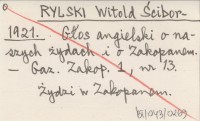 RYLSKI Witold Ścibor-
1921. Głos angielski o na-
szych żydach i o Zakopanem.
— Gaz. Zakop. 1, nr 13.
Żydzi w Zakopanem.